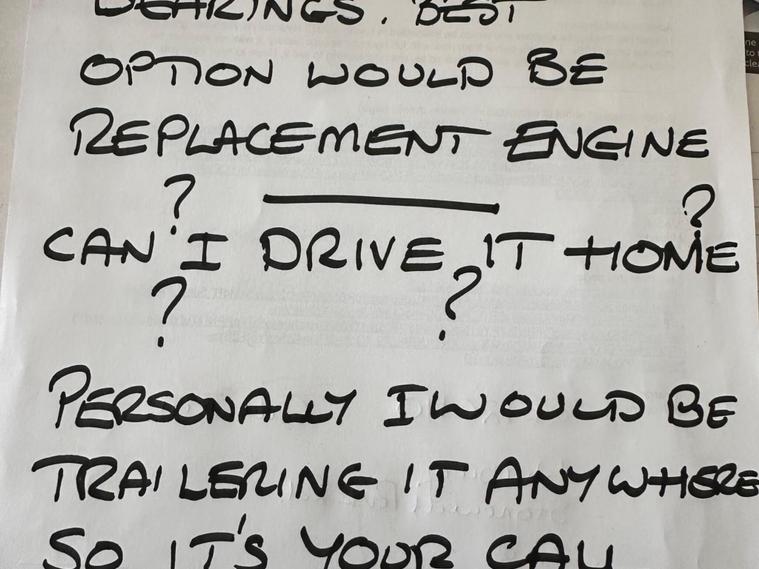 BEARINGS. BEST
OPTION WOULD BE
REPLACEMENT ENGINE
? ?
CAN I DRIVE IT HOME
? ?
PERSONALLY I WOULD BE
TRAILERING IT ANYWHERE
SO IT'S YOUR CALL